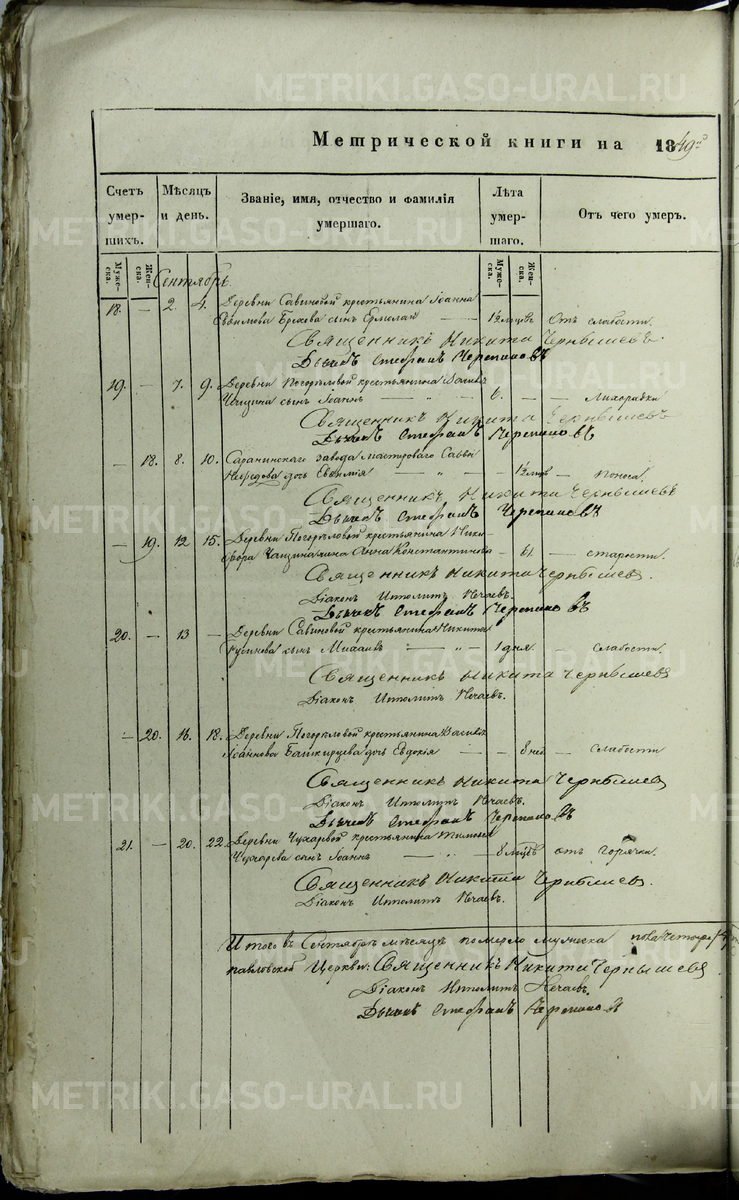 METRIKI.GASO-URAL.RU
Метрической книги на 1849й
Счетъ умер- шихъ.
Мѣсяцъ и день.
Званіе, имя, отчество и фамилія умершаго.
Лѣта умер- шаго.
Отъ чего умеръ.
Муже- ска. Жен- ска.
Муже- ска. Жен- ска.
Сентябрь
18. — 2. 4. Деревни Савиновой крестьянина Іоанна
Евѳимова сынъ Ермолай — 1½ мцовъ Отъ слабости.
Священникъ Никита Чернышевъ
Дьячекъ Стефанъ Черепановъ
19. — 7. 9. Деревни Погорѣловой крестьянина
сынъ Іоаннъ — " — 6. — Лихорадки
Священникъ Никита Чернышевъ
Дьячекъ Стефанъ Черепановъ
— 18. 8. 10. Саранинскаго завода мастероваго Саввы
Нефедова дочь Евѳимія — " — 1½ мцов — поноса
Священникъ Никита Чернышевъ
Дьячекъ Стефанъ Черепановъ
— 19. 12 15. Деревни Погорѣловой крестьянина Ники-
фора жена Анна Константинова — 61. — старости.
Священникъ Никита Чернышевъ.
Діаконъ Ипполитъ Нечаевъ.
Дьячекъ Стефанъ Черепановъ
20. — 13 — Деревни Савиновой крестьянина Никиты
сынъ Михаилъ — " — 1 дня. — слабости.
Священникъ Никита Чернышевъ
Діаконъ Ипполитъ Нечаевъ.
— 20. 16. 18. Деревни Погорѣловой крестьянина
Іоаннова Башкирцева дочь Евдокія — 8 — слабости
Священникъ Никита Чернышев
Діаконъ Ипполитъ Нечаевъ.
Дьячекъ Стефанъ Черепановъ
21. — 20. 22. Деревни Чухаревой крестьянина Тимоѳея
Чухарева сынъ Іоаннъ — " — 8 мцовъ отъ горячки.
Священникъ Никита Чернышевъ.
Діаконъ Ипполитъ Нечаевъ.
Итого въ Сентябрѣ мѣсяцѣ померло мужеска пола четыре
павловской Церкви: Священникъ Никита Чернышевъ
Діаконъ Ипполитъ Нечаевъ.
Дьячекъ Стефанъ Черепановъ